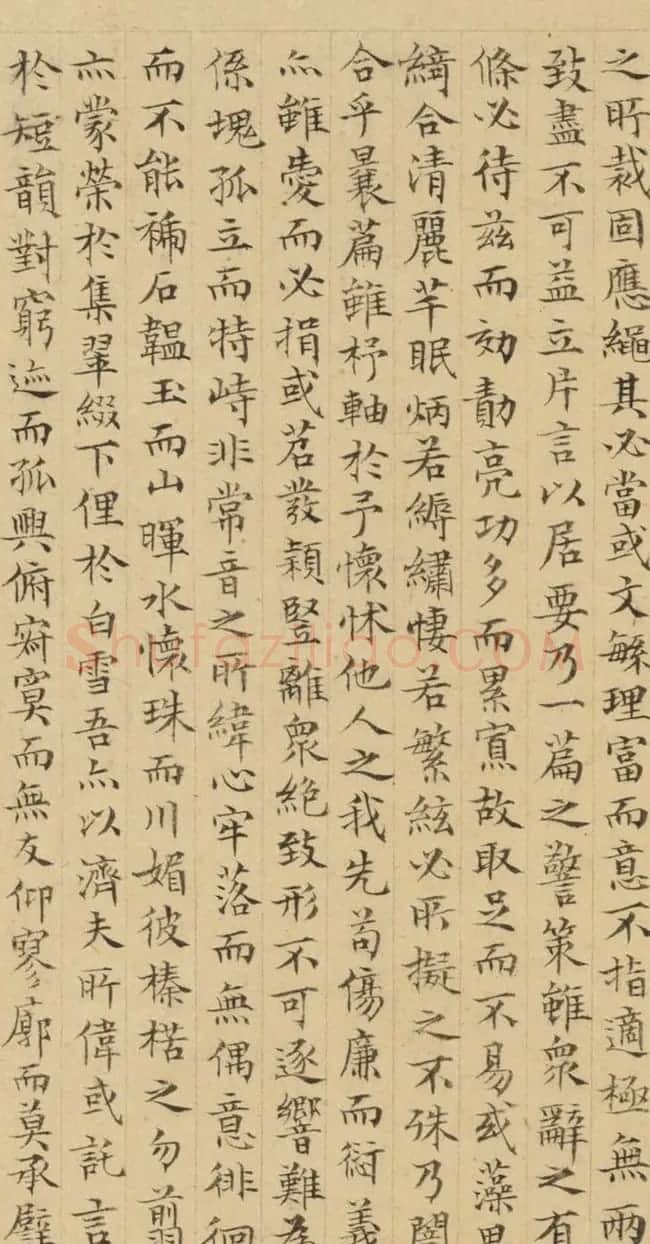 之所裁固應繩其必當或文繁理富而意不指適極無兩
致盡不可益立片言以居要乃一篇之警策雖衆辭之有
條必待茲而効勣亮功多而累寡故取足而不易或藻思
綺合清麗芊眠炳若縟繡悽若繁絃必所擬之不殊乃闇
合乎曩篇雖杼軸於予懷怵他人之我先苟傷廉而愆義
亦雖愛而必捐或苕發穎豎離衆絕致形不可逐響難為
係塊孤立而特峙非常音之所緯心牢落而無偶意徘徊
而不能褫石韞玉而山暉水懷珠而川媚彼榛楛之勿翦
亦蒙榮於集翠綴下俚於白雪吾亦以濟夫所偉或託言
於短韻對窮迹而孤興俯寂寞而無友仰寥廓而莫承譬
Shufaziliao.COM